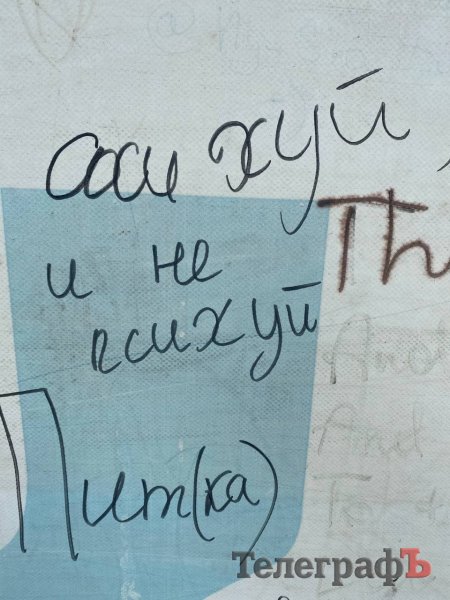 соси хуй,
и не
психуй
Th
Пит(ка)
ТелеграфЪ